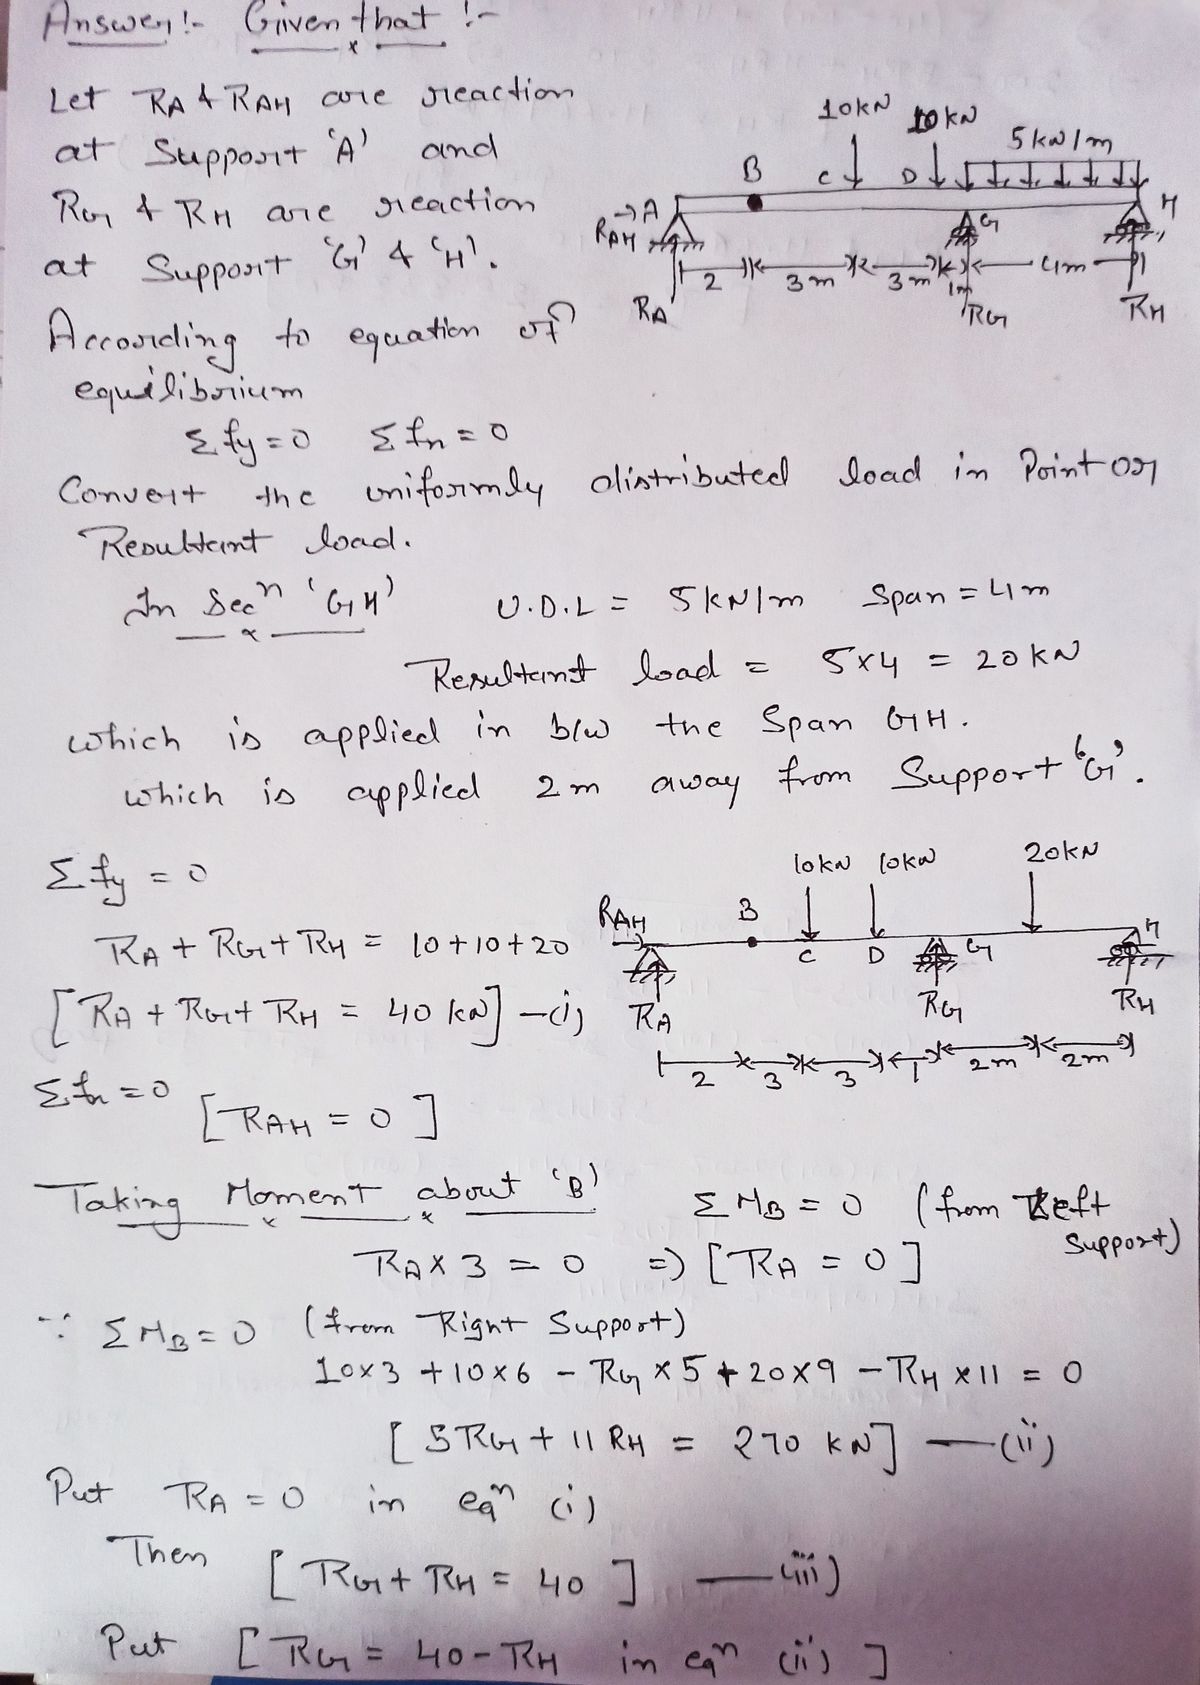 Answer:- Given that :-
Let RA & RAH are reaction
at Support 'A' and
RG & RH are reaction
at Support 'G' & 'H'.
10kN 10kN
5kN/m
B C D
→A G H
RAH
2 3m 3m 1m 4m
RA RG RH
According to equation of
equilibrium
Σfy=0 Σfx=0
Convert the uniformly distributed load in Point or
Resultant load.
In Secⁿ 'GH' U.D.L = 5kN/m Span = 4m
Resultant load = 5x4 = 20kN
which is applied in b/w the Span GH.
which is applied 2m away from Support 'G'.
Σfy = 0
10kN 10kN 20kN
RAH B C D G H
RA + RG + RH = 10+10+20
[RA + RG + RH = 40 kN] —(i)
RA RG RH
2 3 3 1 2m 2m
Σfx = 0
[RAH = 0]
Taking Moment about 'B' ΣMB = 0 (from Left Support)
RA x 3 = 0 => [RA = 0]
∵ ΣMB = 0 (from Right Support)
10x3 + 10x6 - RG x 5 + 20x9 - RH x 11 = 0
[5RG + 11 RH = 270 kN] —(ii)
Put RA = 0 in eqⁿ (i)
Then [RG + RH = 40] —(iii)
Put [RG = 40 - RH in eqⁿ (ii)]